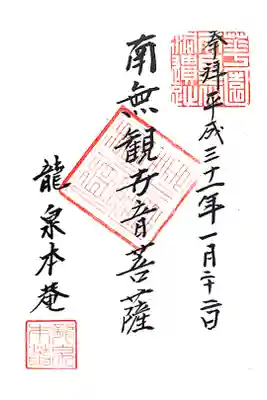 奉拝 平成三十一年一月二十二日
南無観世音菩薩
龍泉本庵